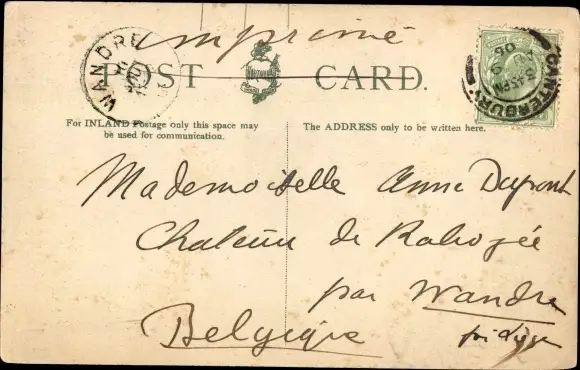 imprimé
POST CARD.
WANDRE
CANTERBURY
5.45PM
06
For INLAND Postage only this space may
be used for communication.
The ADDRESS only to be written here.
Mademoiselle Anne Dupont
Château de Rabozée
par Wandre
Belgique